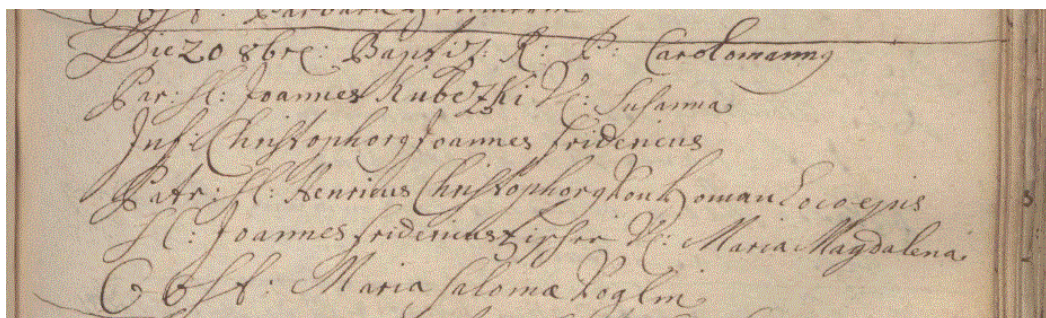 Obst: Barbara
Die 20 8bre: Baptiz: R: P: Carolomannus
Par: H: Joannes Kubezki V: Susanna
Inf: Christophorus Joannes Fridericus
Patr: H: Henricus Christophorus Loco ejus
H: Joannes Fridericus V: Maria Magdalena
Obst: Maria Salome Voglin